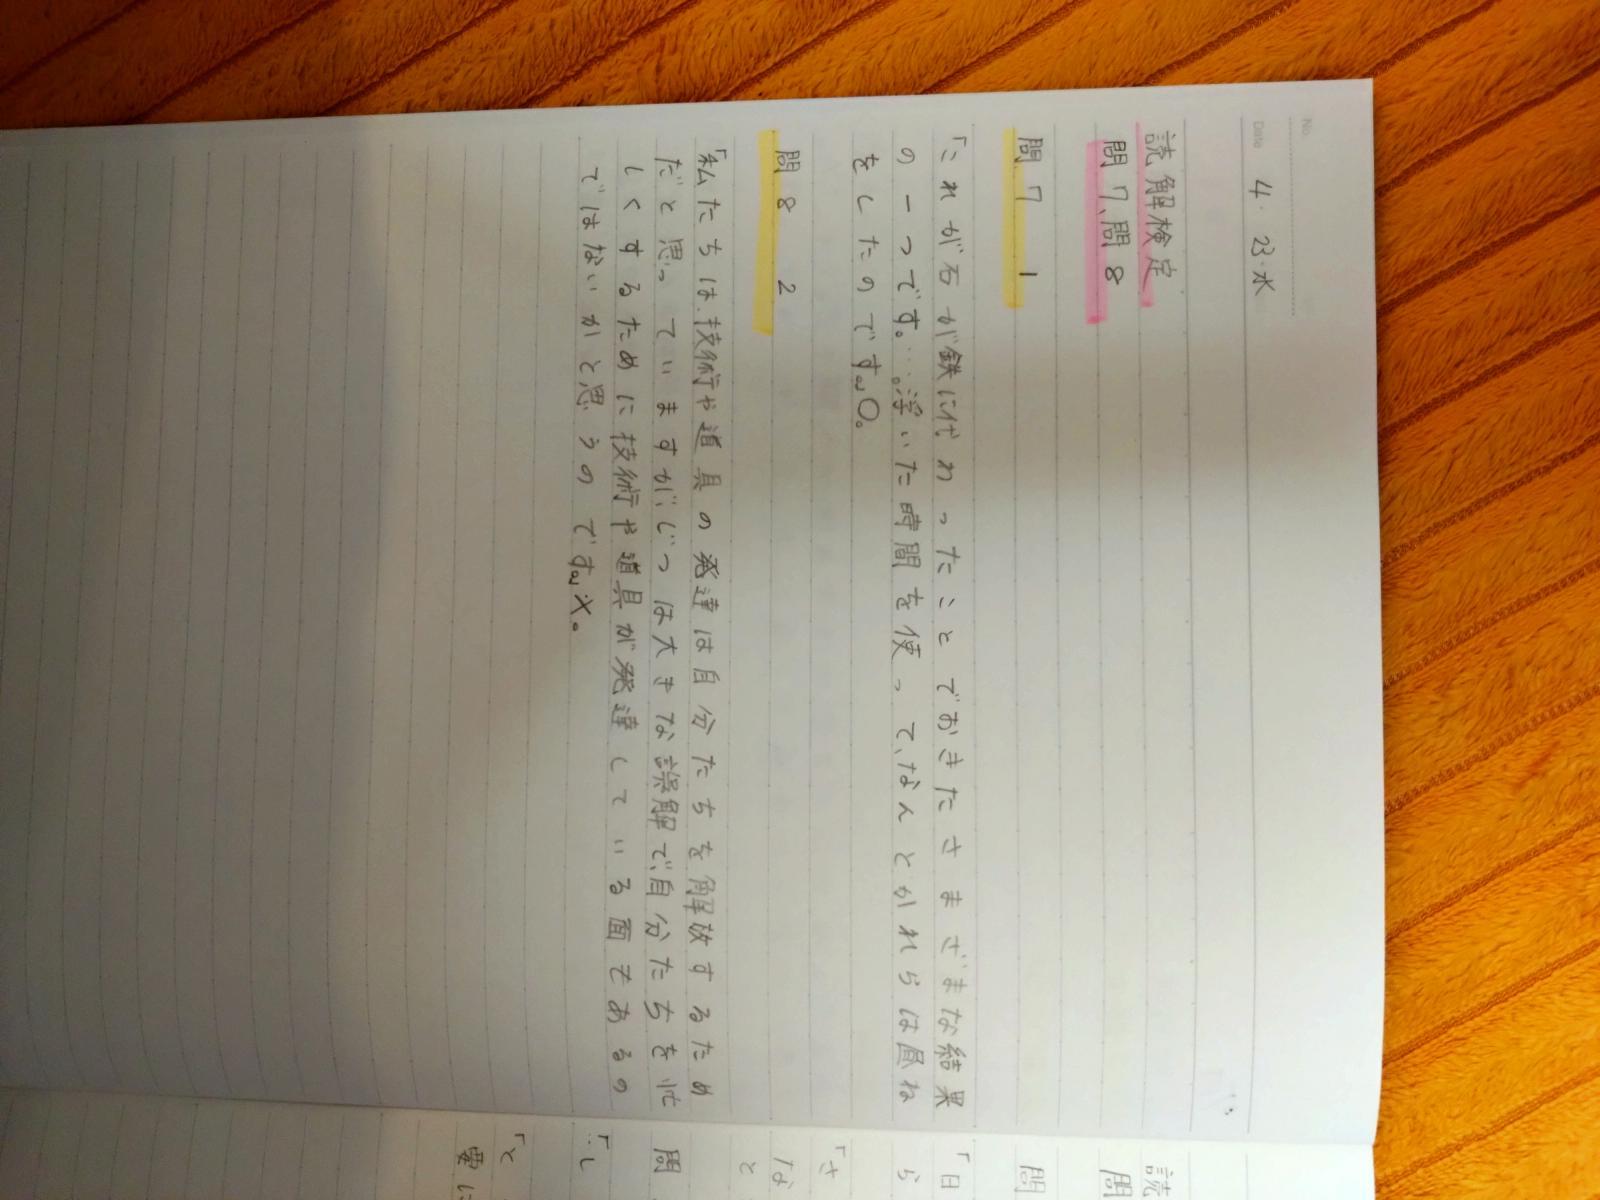 No.
Date 4・23・水
読解検定
問7、問8
問7 1
「これが石が鉄に代わったことでおきたさまざまな結果
の一つです。…。浮いた時間を使って、なんとかれらは昼ね
をしたのです。」〇。
問8 2
「私たちは、技術や道具の発達は自分たちを解放するため
だと思っていますが、じつは大きな誤解で、自分たちを忙
しくするために技術や道具が発達している面もあるの
ではないかと思うのです。」×。
読
問
問
「日
ら
「さ
な
と
問
「…し
「と
要に